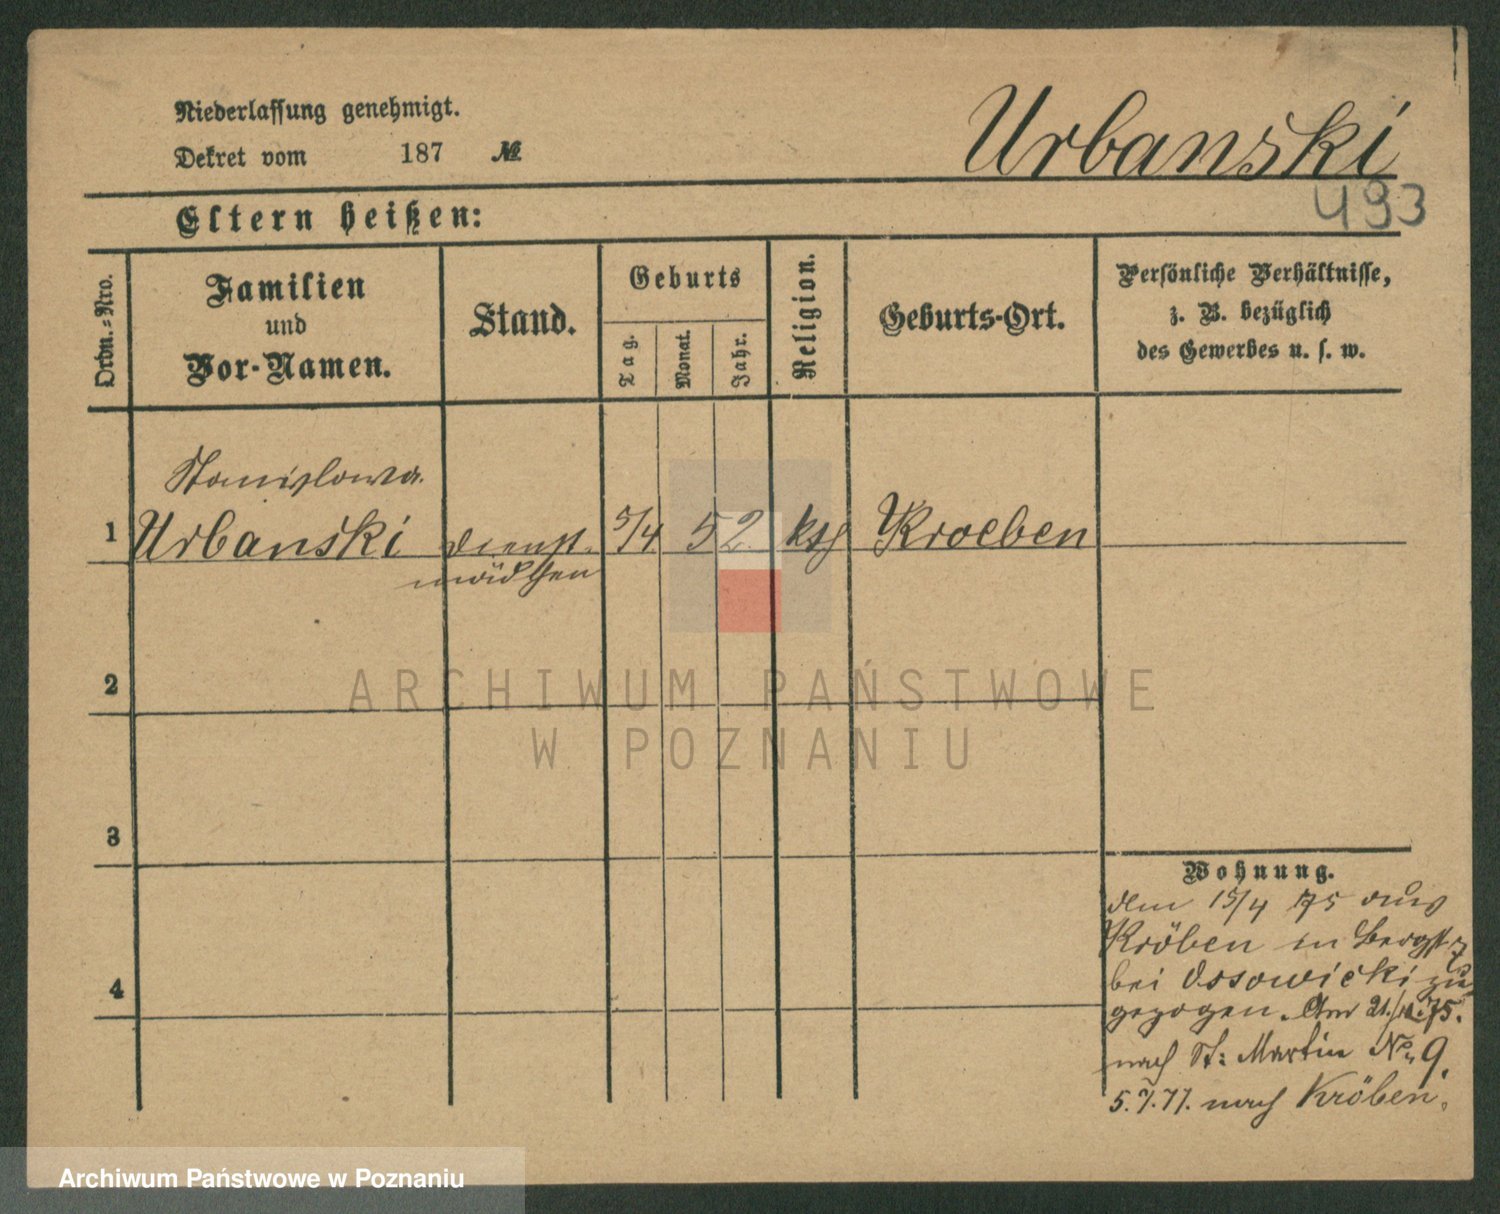 Niederlassung genehmigt.
Dekret vom 187 №
Urbanski
493
Eltern heißen:
Ordn.=Nro.
Familien
und
Vor-Namen.
Stand.
Geburts
Tag.
Monat.
Jahr.
Religion.
Geburts-Ort.
Persönliche Verhältnisse,
z. B. bezüglich
des Gewerbes u. s. w.
Stanislowa
1 Urbanski Dienst- 5/4 52 kth Kroeben
mädchen
2
3
4
ARCHIWUM PAŃSTWOWE
W POZNANIU
Wohnung.
den 15/4 75 aus
Kröben in Bergstr 7
bei Ossowicki zu
gezogen. Am 21./12.75.
nach St: Martin No 9.
5.7.77. nach Kröben.
Archiwum Państwowe w Poznaniu